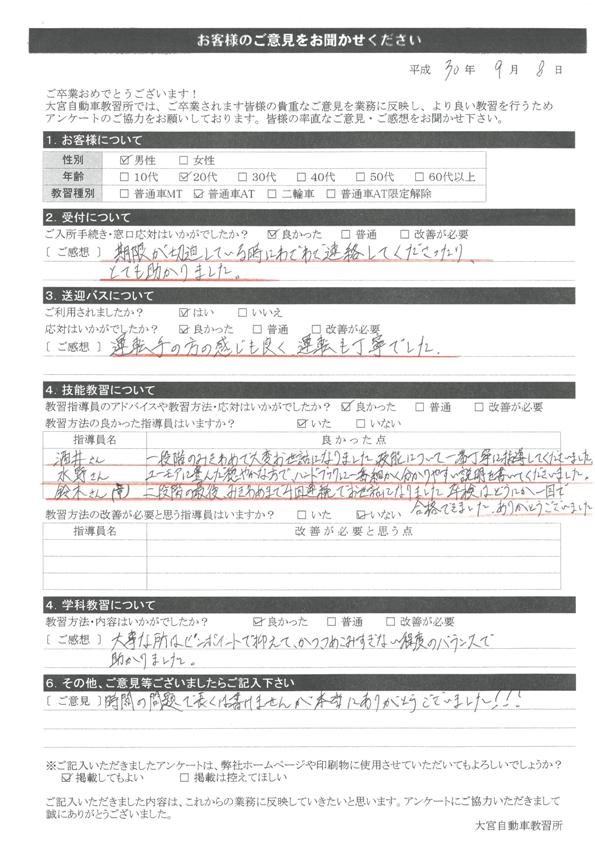 お客様のご意見をお聞かせください
平成 30年 9月 8日
ご卒業おめでとうございます！
大宮自動車教習所では、ご卒業されます皆様の貴重なご意見を業務に反映し、より良い教習を行うため
アンケートのご協力をお願いしております。皆様の率直なご意見・ご感想をお聞かせ下さい。
1. お客様について
性別 ☑男性 □女性
年齢 □10代 ☑20代 □30代 □40代 □50代 □60代以上
教習種別 □普通車MT ☑普通車AT □二輪車 □普通車AT限定解除
2. 受付について
ご入所手続き・窓口応対はいかがでしたか？ ☑良かった □普通 □改善が必要
[ご感想] 期限が切迫している時にわざわざ連絡してくださったり、
とても助かりました。
3. 送迎バスについて
ご利用されましたか？ ☑はい □いいえ
応対はいかがでしたか？ ☑良かった □普通 □改善が必要
[ご感想] 運転手の方の感じも良く、運転も丁寧でした。
4. 技能教習について
教習指導員のアドバイスや教習方法・応対はいかがでしたか？ ☑良かった □普通 □改善が必要
教習方法の良かった指導員はいますか？ ☑いた □いない
指導員名 良かった点
酒井さん 一段階のみきわめで大変お世話になりました。技能について一番丁寧に指導してくださいました。
水野さん ユーモアに富んだ穏やかな方で、ハンドブックに一番細かく分かりやすい説明を書いてくださいました。
鈴木さん 二段階の最後、みきわめまで4回連続でお世話になりました。卒検はどうにか一回で
合格できました。ありがとうございました
教習方法の改善が必要と思う指導員はいますか？ □いた ☑いない
指導員名 改善が必要と思う点
4. 学科教習について
教習方法・内容はいかがでしたか？ ☑良かった □普通 □改善が必要
[ご感想] 大事な所はピンポイントで抑えて、かつつめこみすぎない程度のバランスで
助かりました。
6. その他、ご意見等ございましたらご記入下さい
[ご意見] 時間の問題で長くは書けませんが本当にありがとうございました!!!
※ご記入いただきましたアンケートは、弊社ホームページや印刷物に使用させていただいてもよろしいでしょうか？
☑掲載してもよい □掲載は控えてほしい
ご記入いただきました内容は、これからの業務に反映していきたいと思います。アンケートにご協力いただきまして
誠にありがとうございました。
大宮自動車教習所